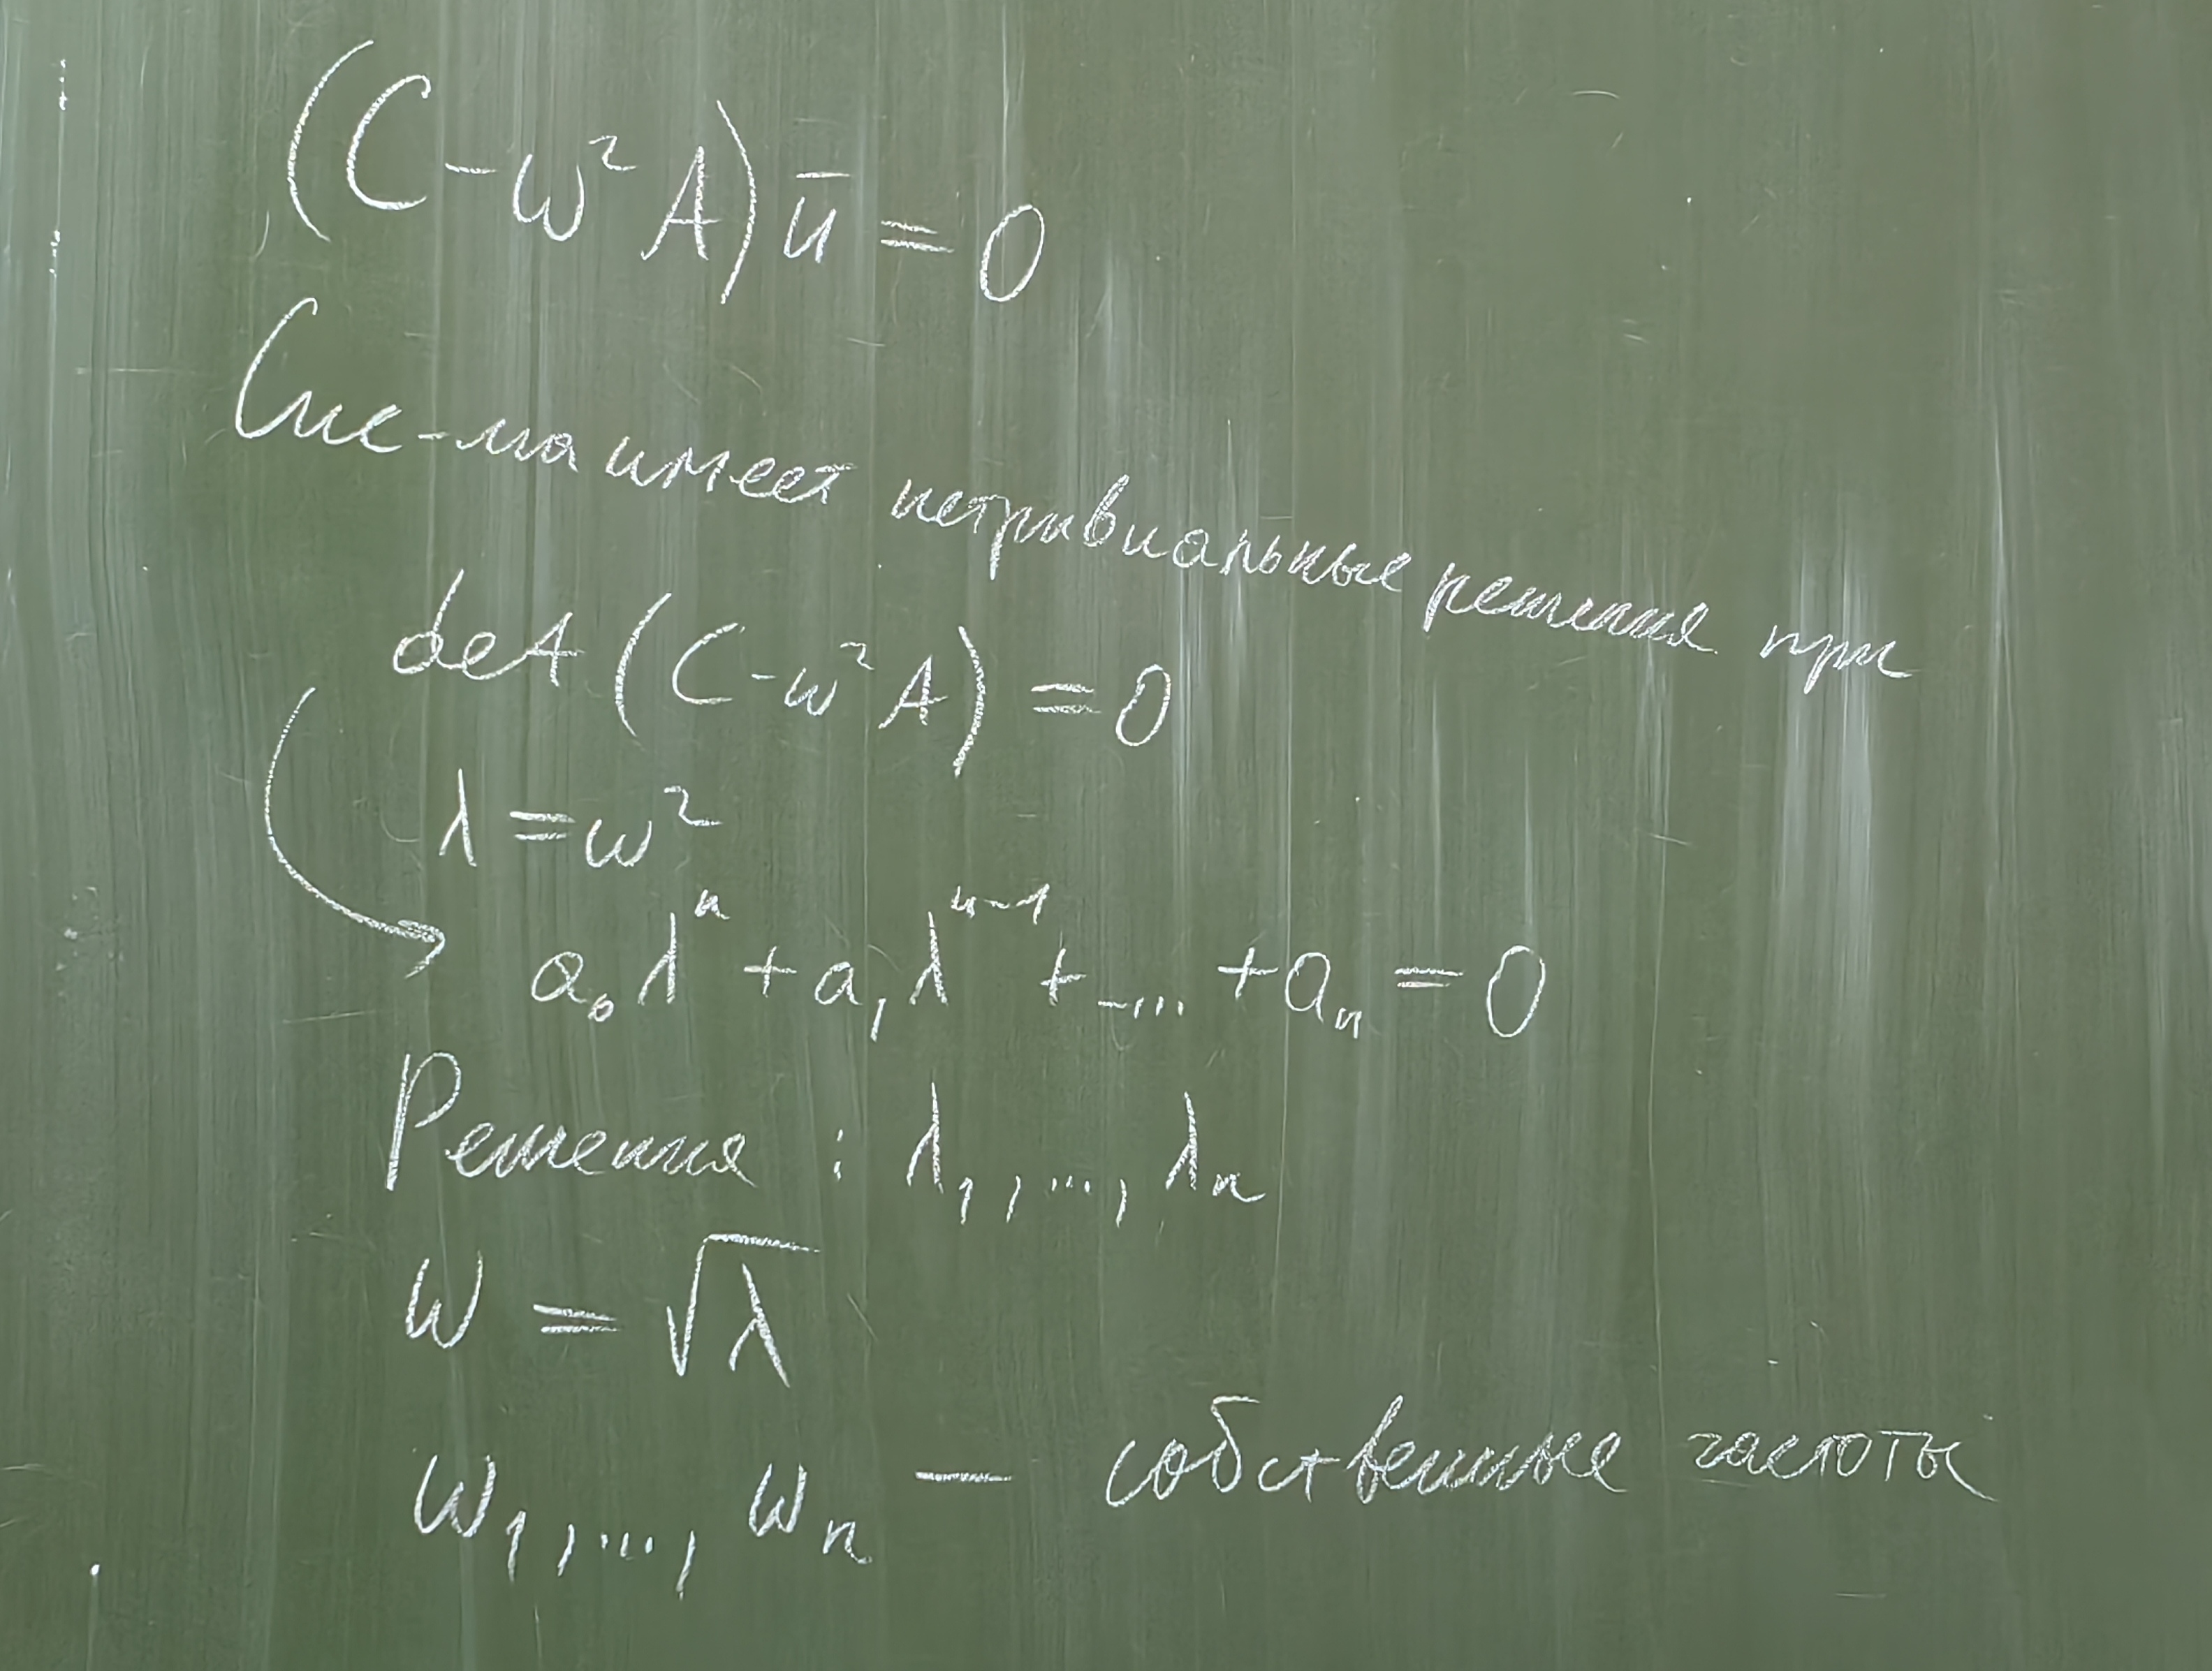 (C - ω² A) ū = 0
Сис-ма имеет нетривиальные решения при
det (C - ω² A) = 0
λ = ω²
a₀ λⁿ + a₁ λⁿ⁻¹ + ... + aₙ = 0
Решения : λ₁, ..., λₙ
ω = √λ
ω₁, ..., ωₙ — собственные частоты